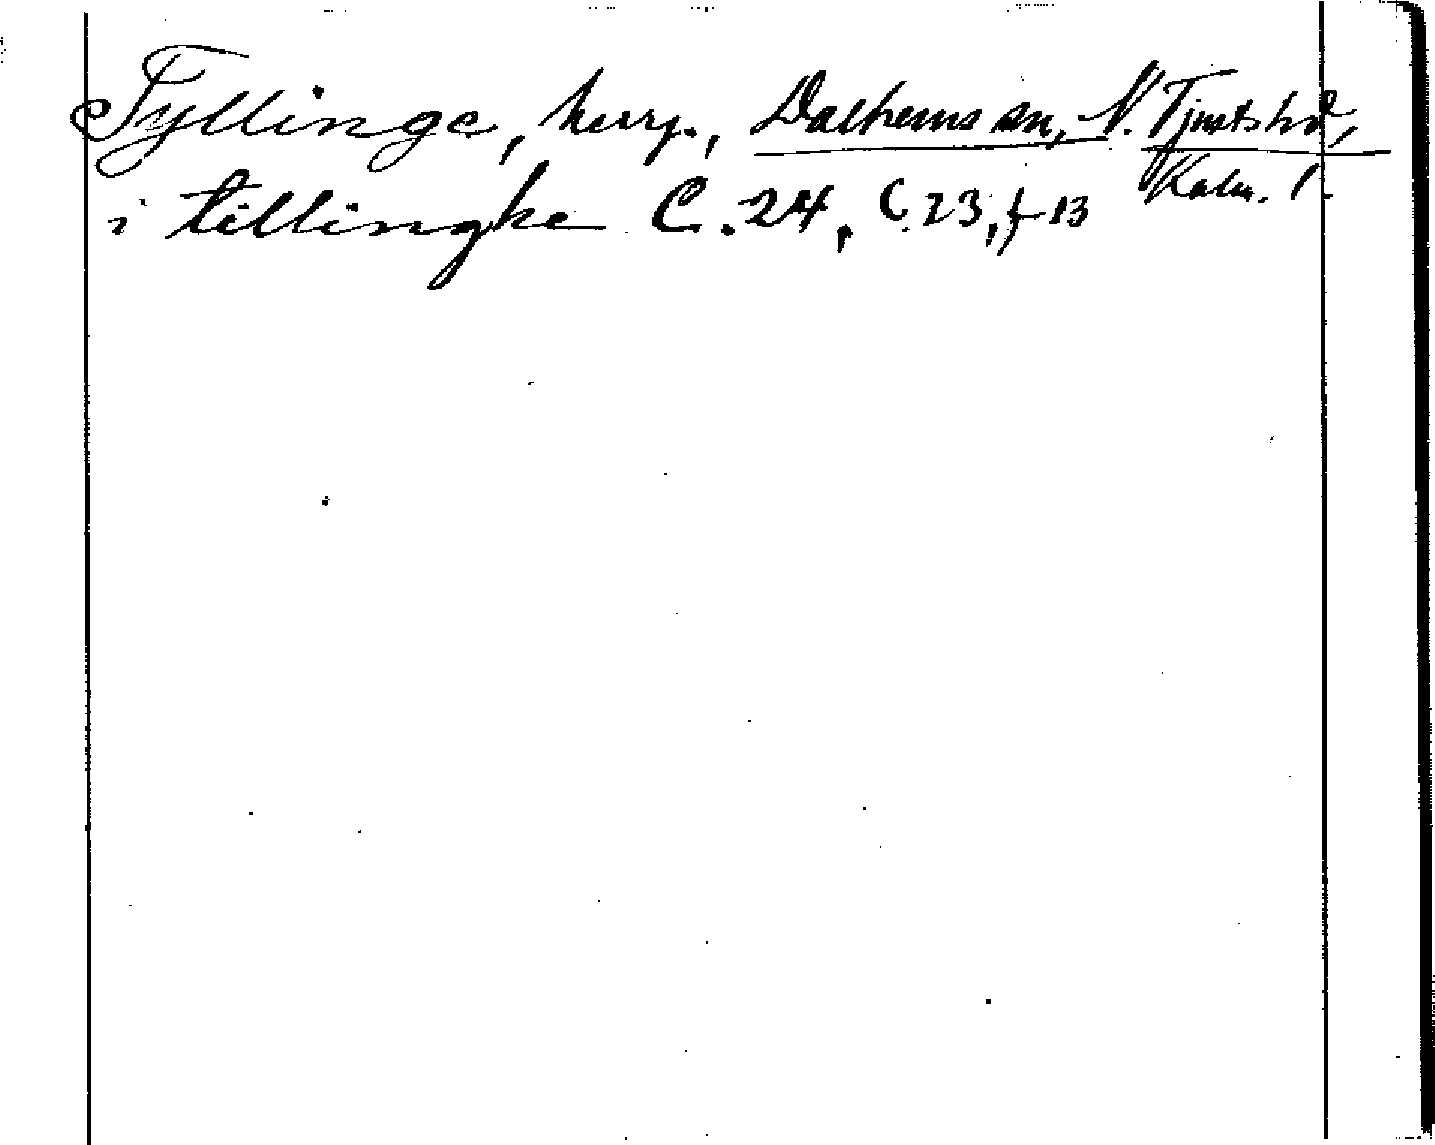 Fyllinge, herrg., Dalhems sn, N. Tjusts hd,
Kalm. l.
i tillinghe C. 24, C. 23, f 13